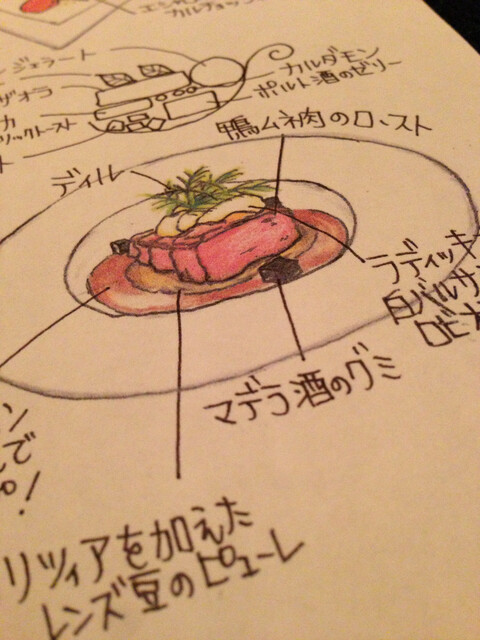 カルチョッフ
ジェラート
カルダモン
ポルト酒のゼリー
ザオラ
カ
ックトースト
ト
鴨ムネ肉のロースト
ディル
ラディッキ
白バルサ
ロビオ
マデラ酒のグミ
ン
で
!
リツィアを加えた
レンズ豆のピューレ